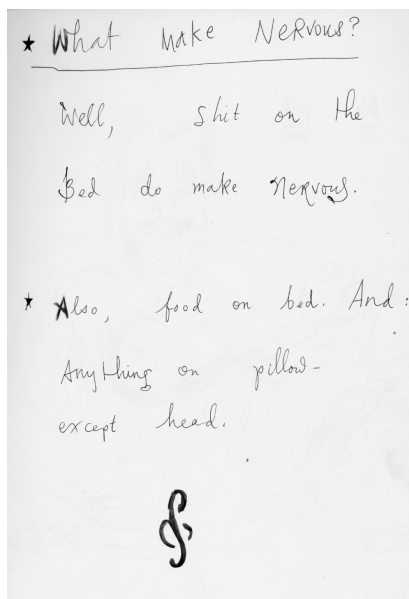 ★ What Make Nervous?
Well, Shit on the
Bed do make Nervous.
★ Also, food on bed. And:
Anything on pillow-
except head.